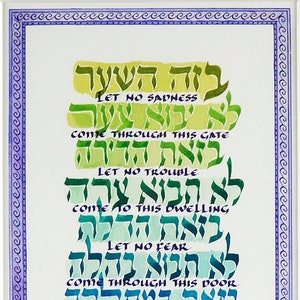 בזה השער
LET NO SADNESS
לא יבוא צער
COME THROUGH THIS GATE
בזאת הדירה
LET NO TROUBLE
לא תבוא צרה
COME TO THIS DWELLING
בזאת הדלת
LET NO FEAR
לא תבוא בהלה
COME THROUGH THIS DOOR